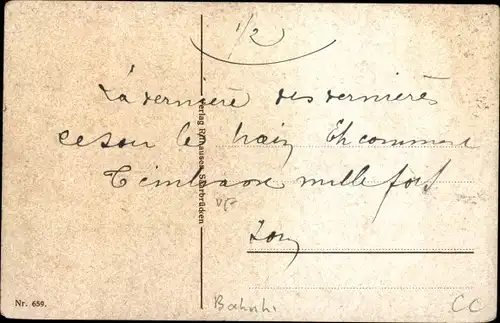 1/2
La dernière des dernières
ce soir le train Eh comment
t'embrasse mille fois
Verlag R. Saarbrücken
Nr. 659.
Bahnh.
CC